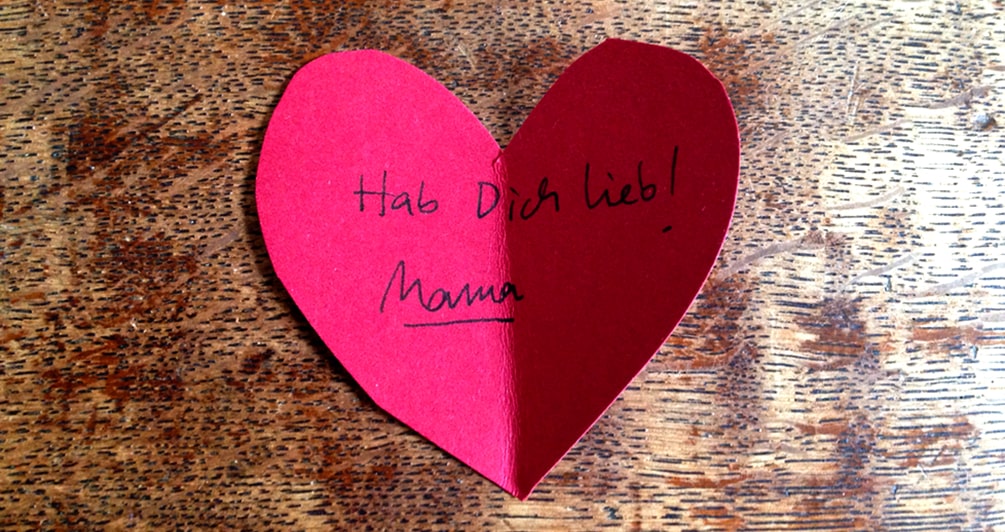 Hab Dich lieb!
Mama